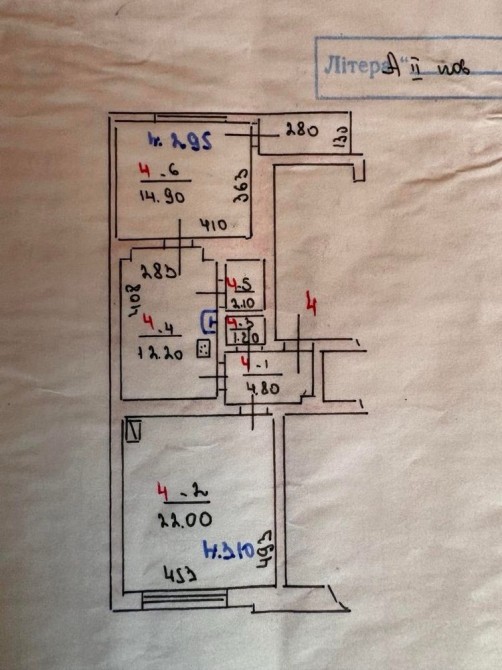 Літера "А II пов
280
133
h. 295
4-6
14.90
363
410
283
408
4-5
2.10
4
4-4
12.20
4-3
1.20
4-1
4.80
4-2
22.00
h. 310
493
453